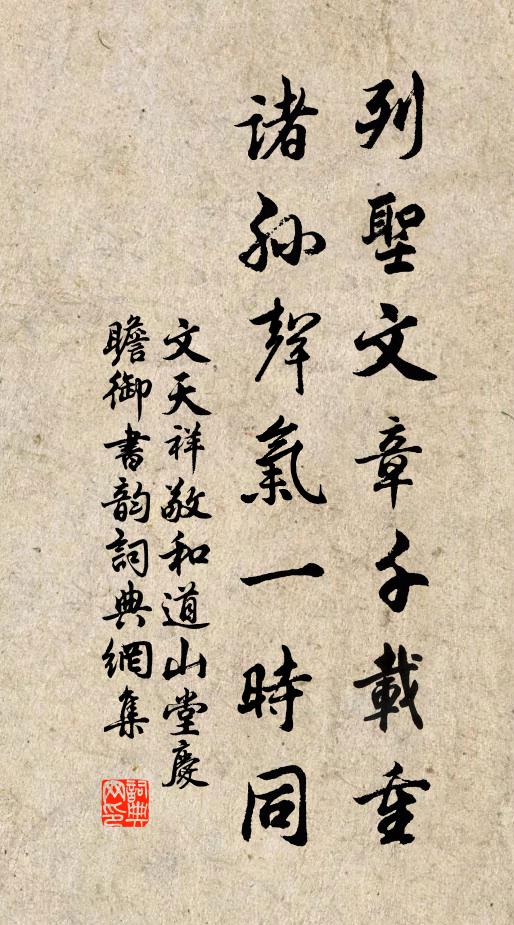 列聖文章千載重
諸孫聲氣一時同
文天祥敬和道山堂慶
瞻御書韵詞典網集
詞典網印